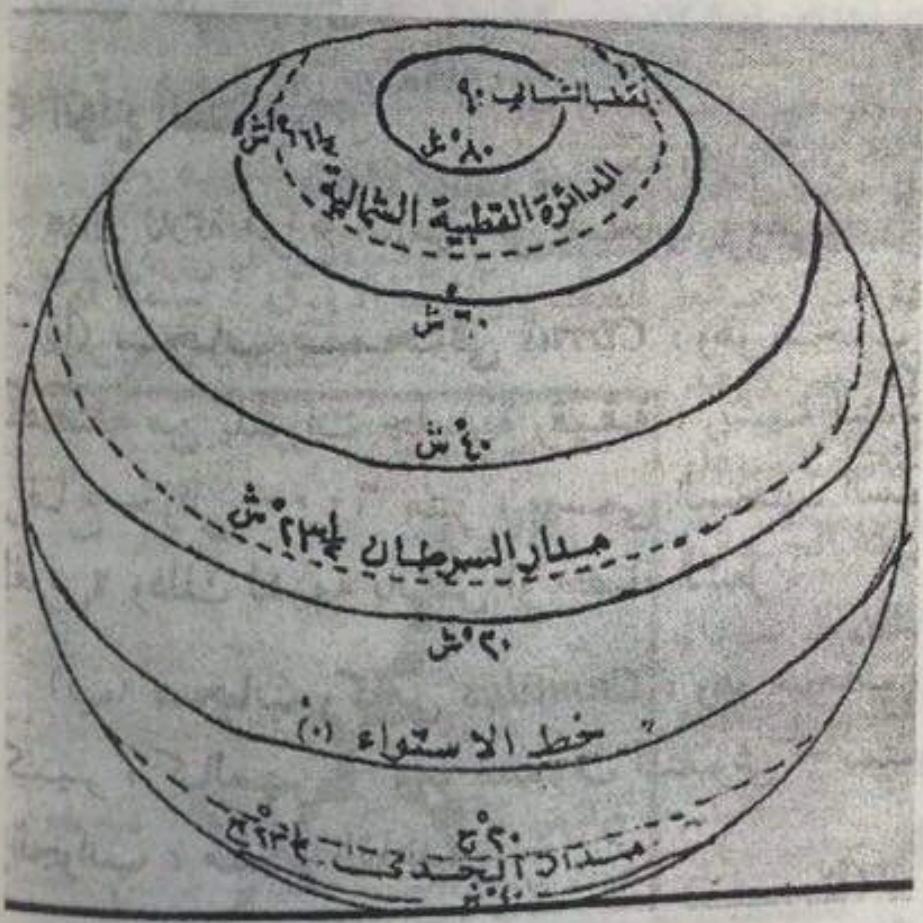 القطب الشمالي ٩٠
٨٠° ش
٦٦½° ش
الدائرة القطبية الشمالية
٦٠° ش
٤٠° ش
مدار السرطان ٢٣½° ش
٢٠° ش
خط الاستواء (٠°)
٢٠° ج
مدار الجدي ٢٣½° ج